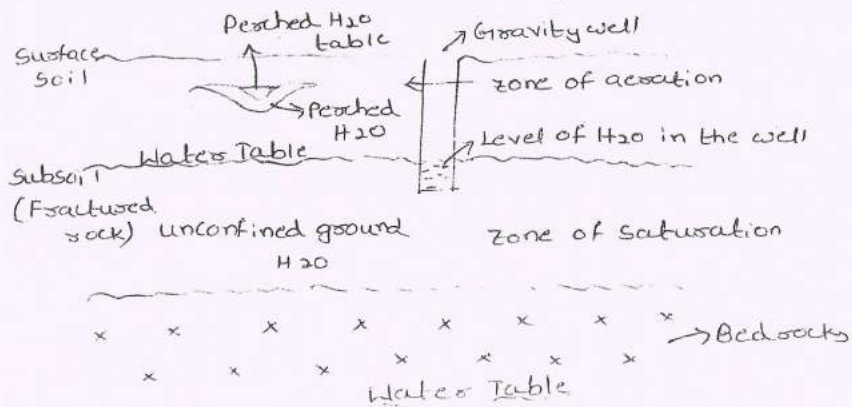 Perched H2O
table
Gravity well
Surface
Soil
zone of aeration
Perched
H2O
Level of H2O in the well
Water Table
Subsoil
(Fractured
rock) unconfined ground
H2O
zone of saturation
Bedrocks
Water Table